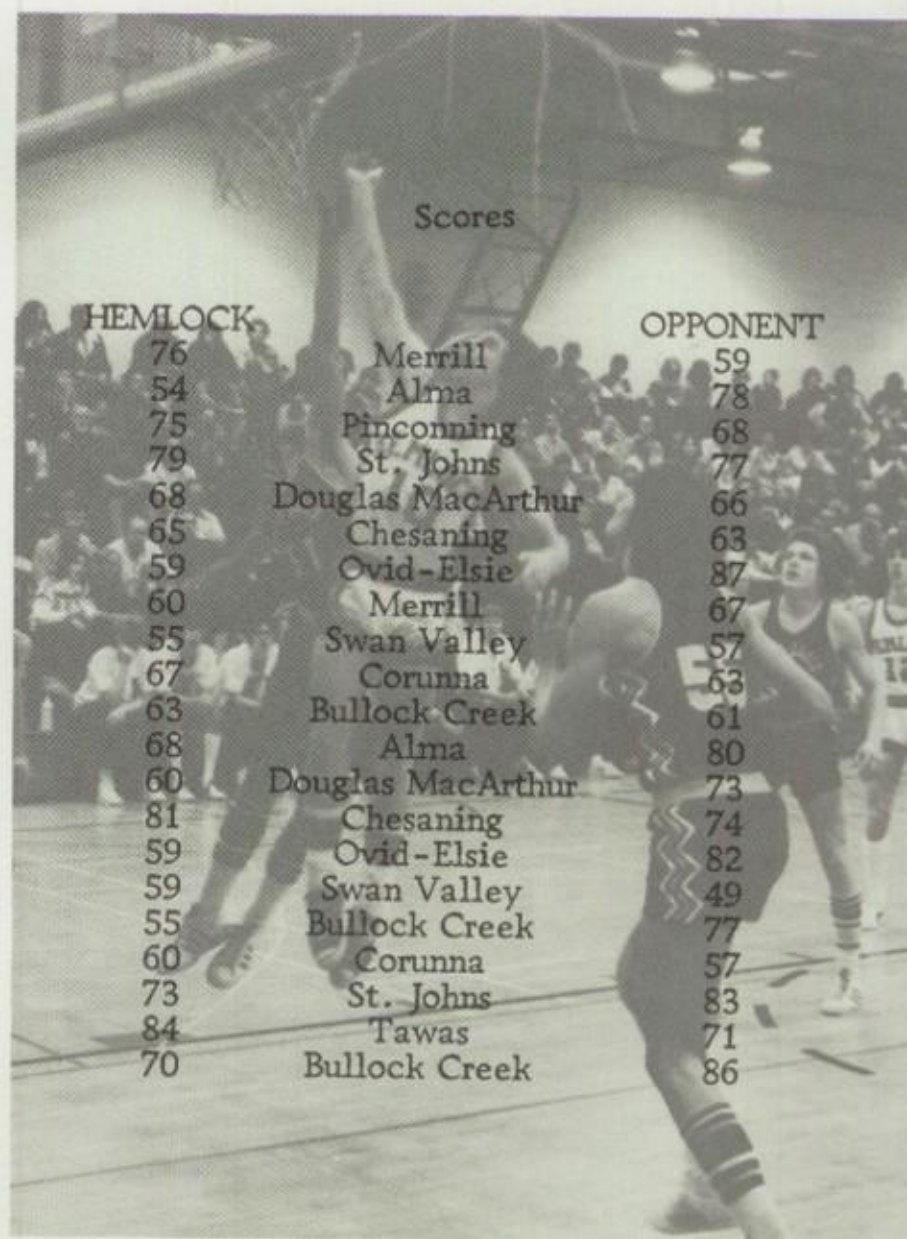 Scores
HEMLOCK OPPONENT
76 Merrill 59
54 Alma 78
75 Pinconning 68
79 St. Johns 77
68 Douglas MacArthur 66
65 Chesaning 63
59 Ovid-Elsie 87
60 Merrill 67
55 Swan Valley 57
67 Corunna 63
63 Bullock Creek 61
68 Alma 80
60 Douglas MacArthur 73
81 Chesaning 74
59 Ovid-Elsie 82
59 Swan Valley 49
55 Bullock Creek 77
60 Corunna 57
73 St. Johns 83
84 Tawas 71
70 Bullock Creek 86
12